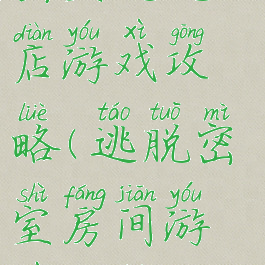 diàn yóu xì gōng
店游戏攻
lüè táo tuō mì
略(逃脱密
shì fáng jiān yóu
室房间游